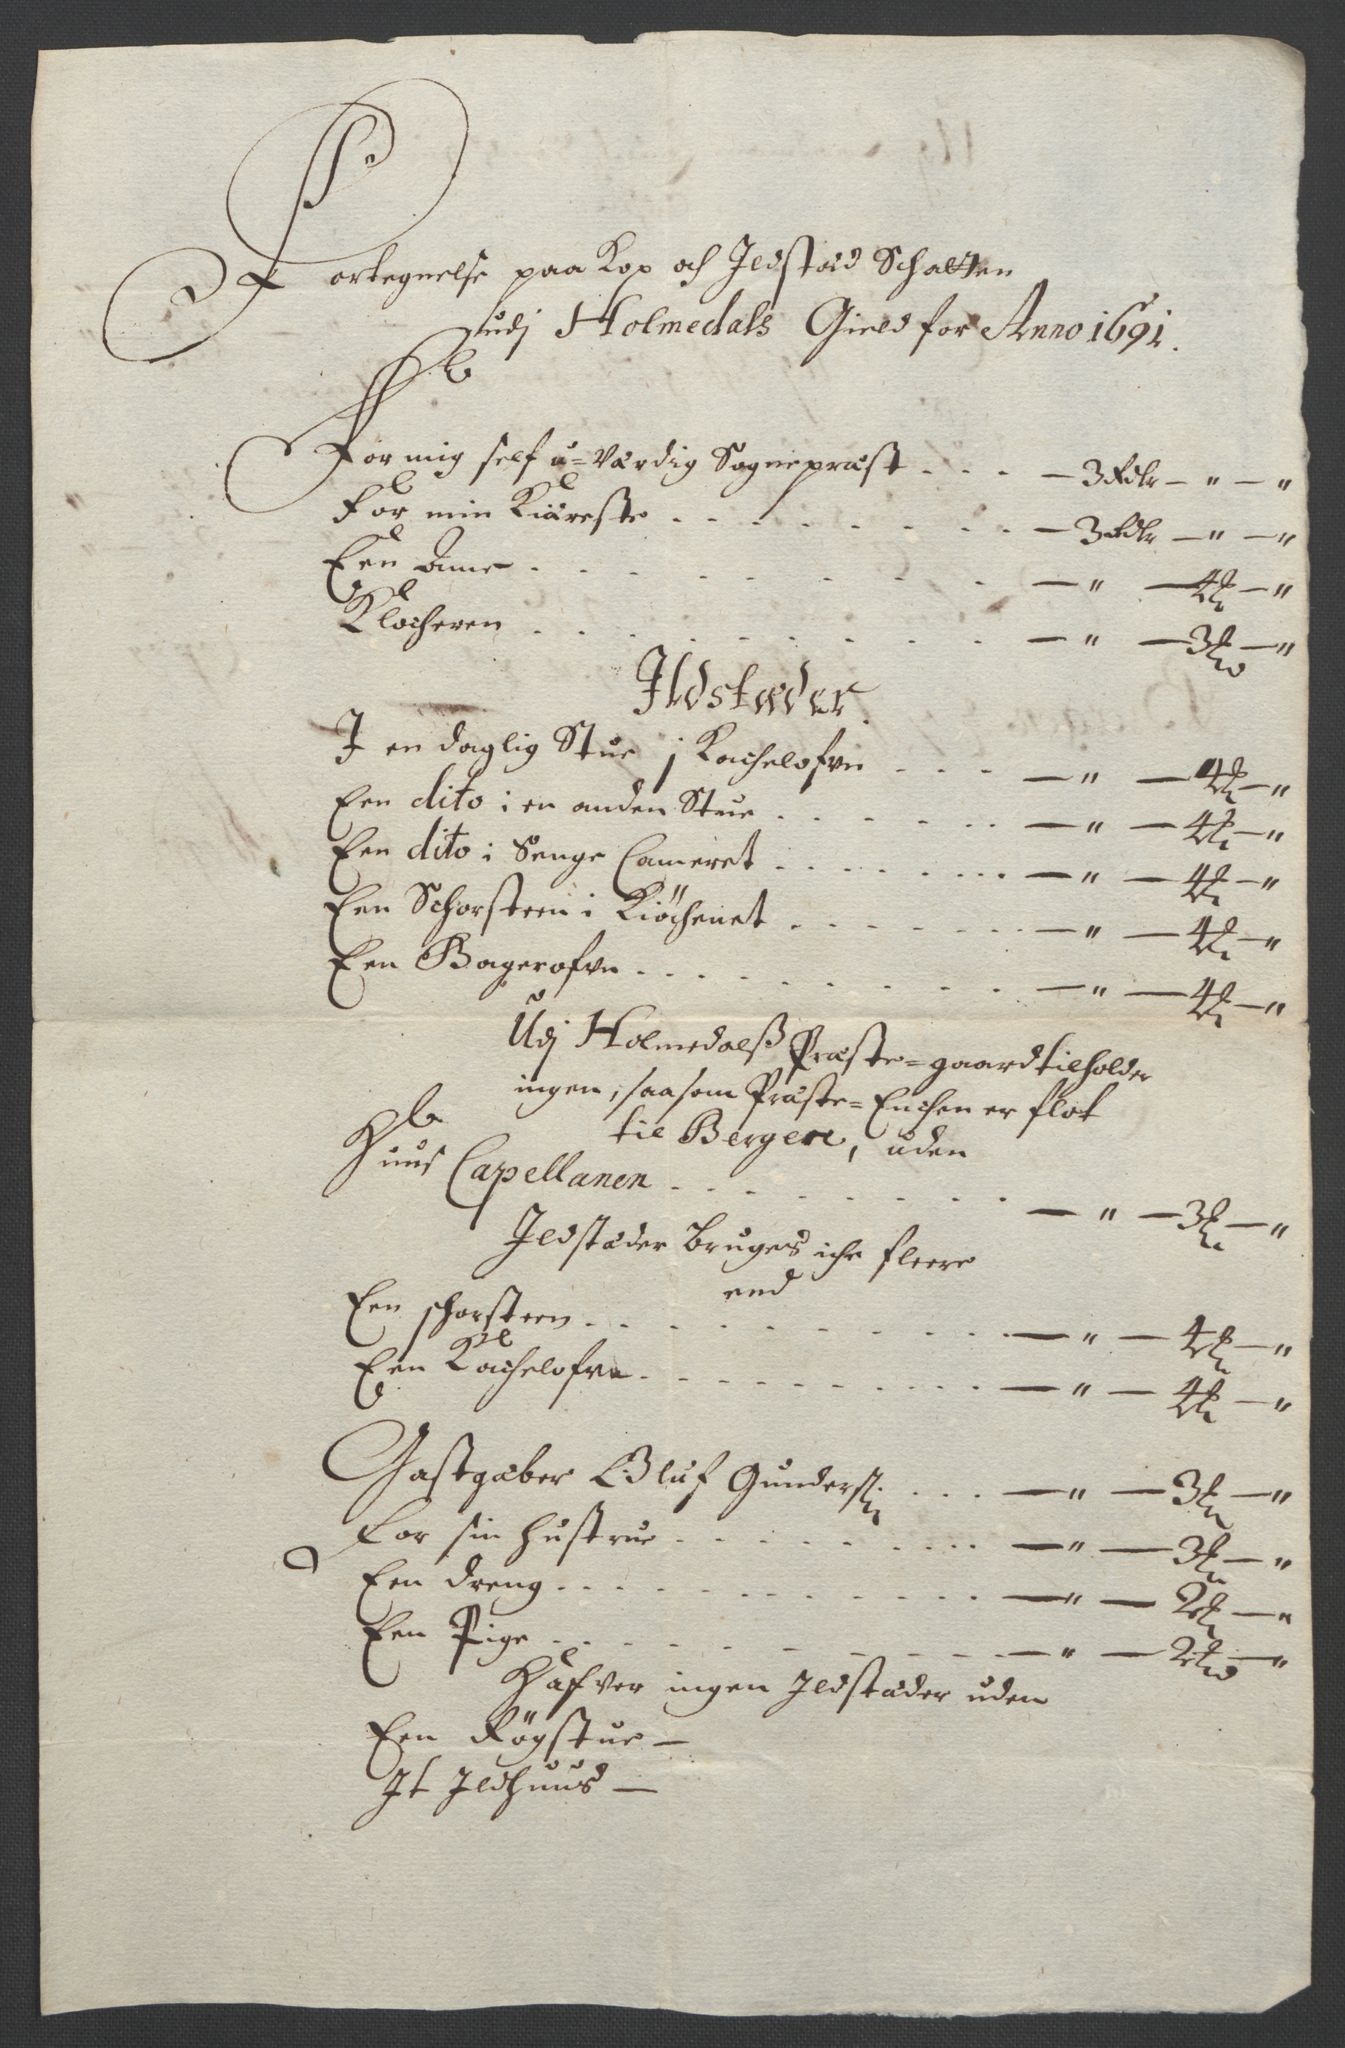 Fortegnelse paa Kop och Ildstæd Schatten
udj Holmedals Gield for Anno 1691.
For mig self u=værdig Sognepræst . . . — 3 Rdlr — " — "
For min Kiæreste . . . — 3 Rdlr — " — "
Een Amme . . . — " — 4 — "
Klocheren . . . — " — 3 — "
Ildstæder.
I en daglig Stue j Kachelofvn . . . — " — 4 — "
Een dito i en anden Stue . . . — " — 4 — "
Een dito i Senge Cameret . . . — " — 4 — "
Een Schorsteen i Kiöchenet . . . — " — 4 — "
Een Bagerofvn . . . — " — 4 — "
Udj Holmedalß Præste=gaard tilholder
ingen, saasom Præste=Enchen er fløt
til Bergen, uden
Huus Capellanen . . . — " — 3 — "
Ildstæder bruges iche fleere
end
Een schorsteen . . . — " — 4 — "
Een Kachelofvn . . . — " — 4 — "
Gastgæber Oluf Gunders: . . . — " — 3 — "
For sin hustrue . . . — " — 3 — "
Een dreng . . . — " — 2 — "
Een Pige . . . — " — 2 — "
Hafver ingen Ildstæder uden
Een Rögstue —
It Ildhuus —